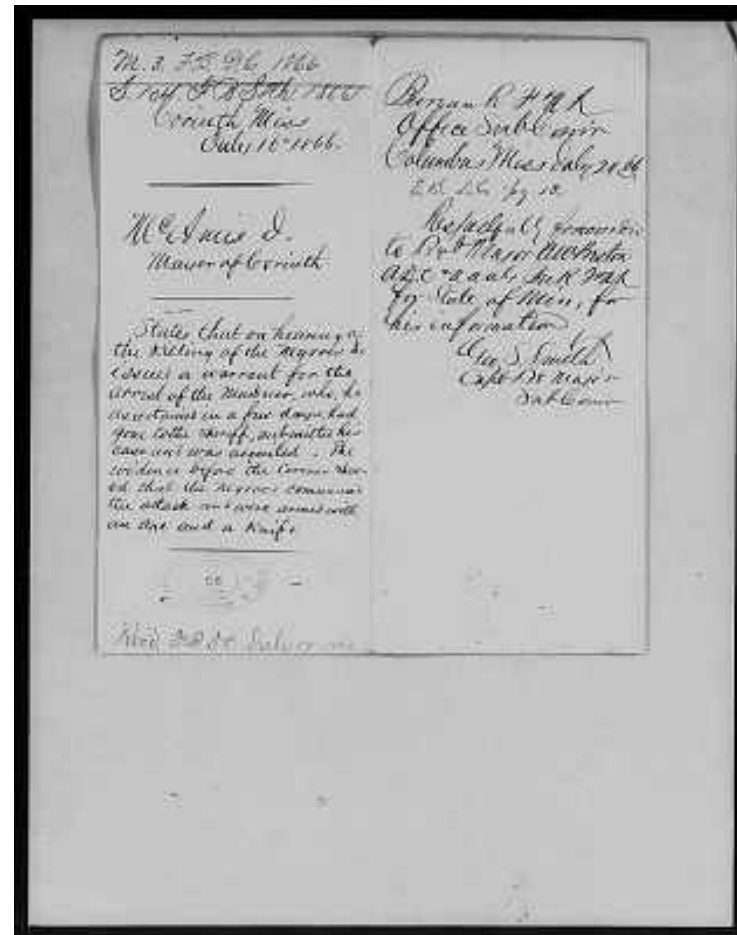 M. 3. F.B. D.C. 1866
Corinth Miss
July 10" 1866.
McAmis I.
Mayor of Corinth
States that on hearing of
the killing of the Negroes he
issued a warrant for the
arrest of the Murderer, who, he
ascertained in a few days, had
gone to the sheriff, submitted his
case and was acquitted. The
evidence before the Coroner show-
ed that the negroes commenced
the attack and were armed with
an axe and a Knife
Recd
Bureau R. F. & A. L.
Office Sub Comr
Columbus Miss July 20 66
E.B.
Respectfully forwarded
to Bvt Major A W Preston
for State of Miss, for
his information
Geo S Smith
Capt Bt Major
Sub Comr